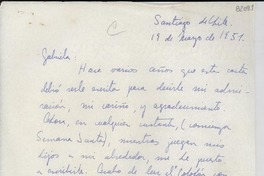 82081
C
Santiago de Chile.
19 de marzo de 1951.
Gabriela:
Hace varios años que esta carta
debió ser escrita para decirle mi admi-
ración, mi cariño, y agradecimiento
Ahora, en cualquier instante, (comienza
Semana Santa), mientras juegan mis
hijos a mi alrededor, me he puesto
a escribirle. Acabo de leer